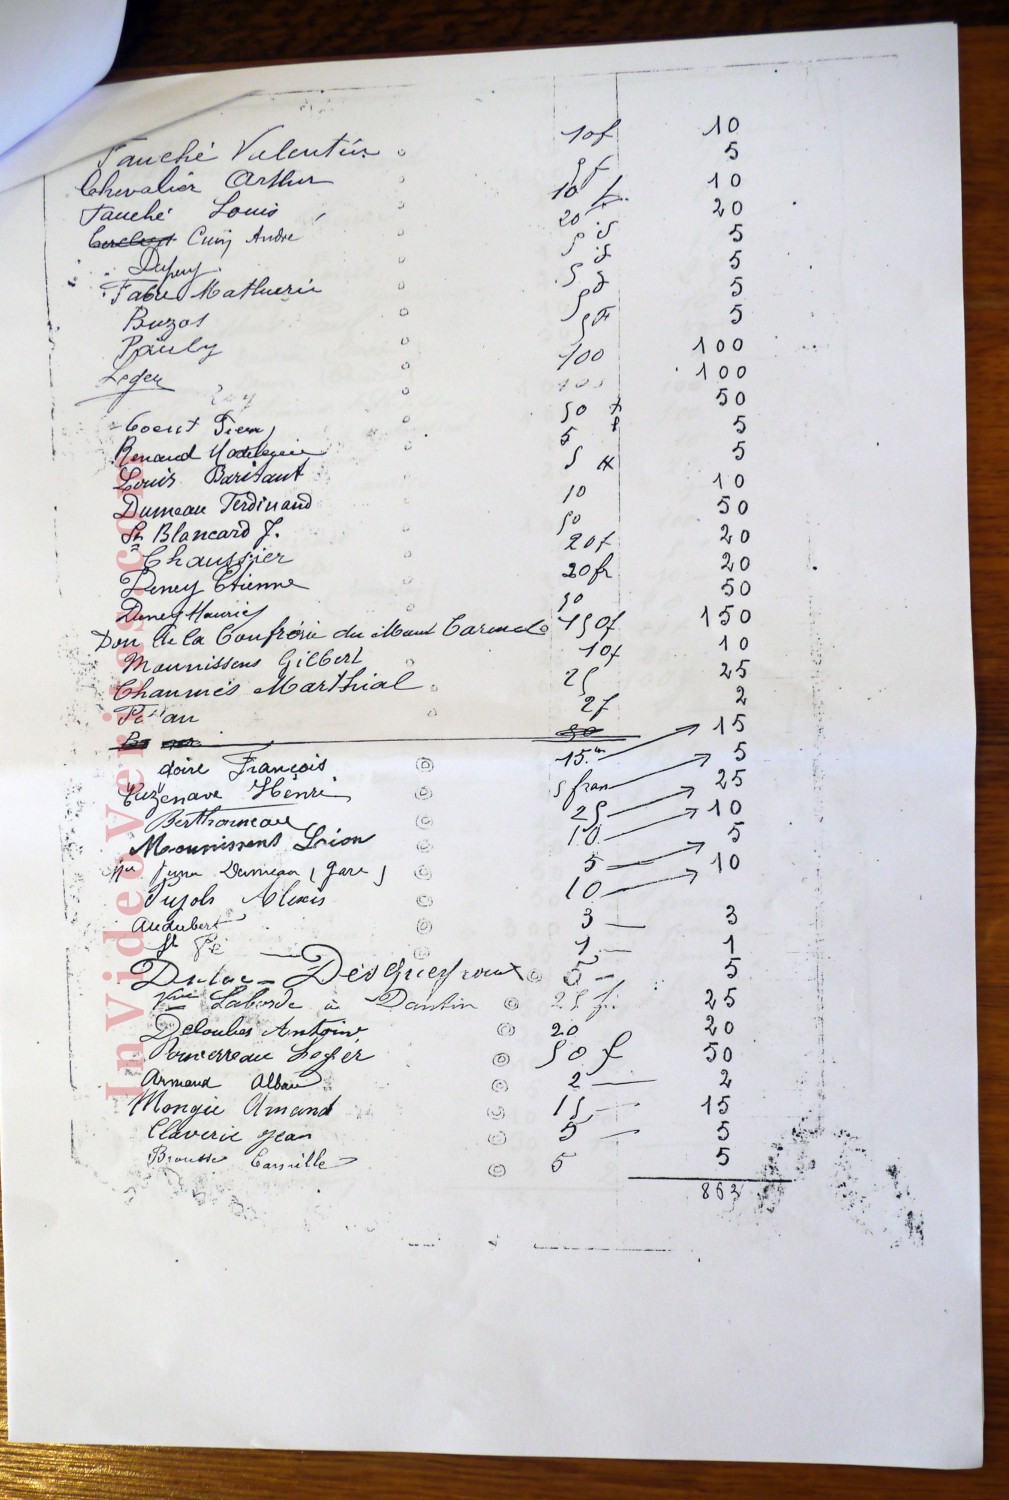 Fauché Valentin 10f 10
Chevalier Arthur 5f 5
Fauché Louis 10 f. 10
Cuin André 20 f 20
Dupuy 5 f 5
Fabre Mathurin 5 f 5
Buzos 5 5
Pauly 5 F 5
Leger 100 100
100 100
Pierre 50 f 50
Renaud 5 f 5
Louis Baritaut 5 5
Dumeau Ferdinand 10 10
Blancard J. 50 50
Chaussier 20f 20
Deney Etienne 20fr 20
Deney Maurice 50 50
Don de la Confrérie du Mont Carmel 150f 150
Mounissens Gilbert 10f 10
Chaumès Marthial 25 25
2f 2
François 15 15
Cuzenave Henri 5 fran 5
Berthomeau 25 25
Mounissens Léon 10 10
Dumeau (Gare) 5 5
Pujols Alexis 10 10
Audubert 3 3
1 1
Dulac - Desqueyroux 5 5
Laborde à Dantin 25 f. 25
Deloubes Antoine 20 20
Pomerreau Roger 50 f 50
Armand Alban 2 2
Mongie Amand 15 15
Claverie Jean 5 5
Brousse Camille 5 5
863
InVideoVeritas.com